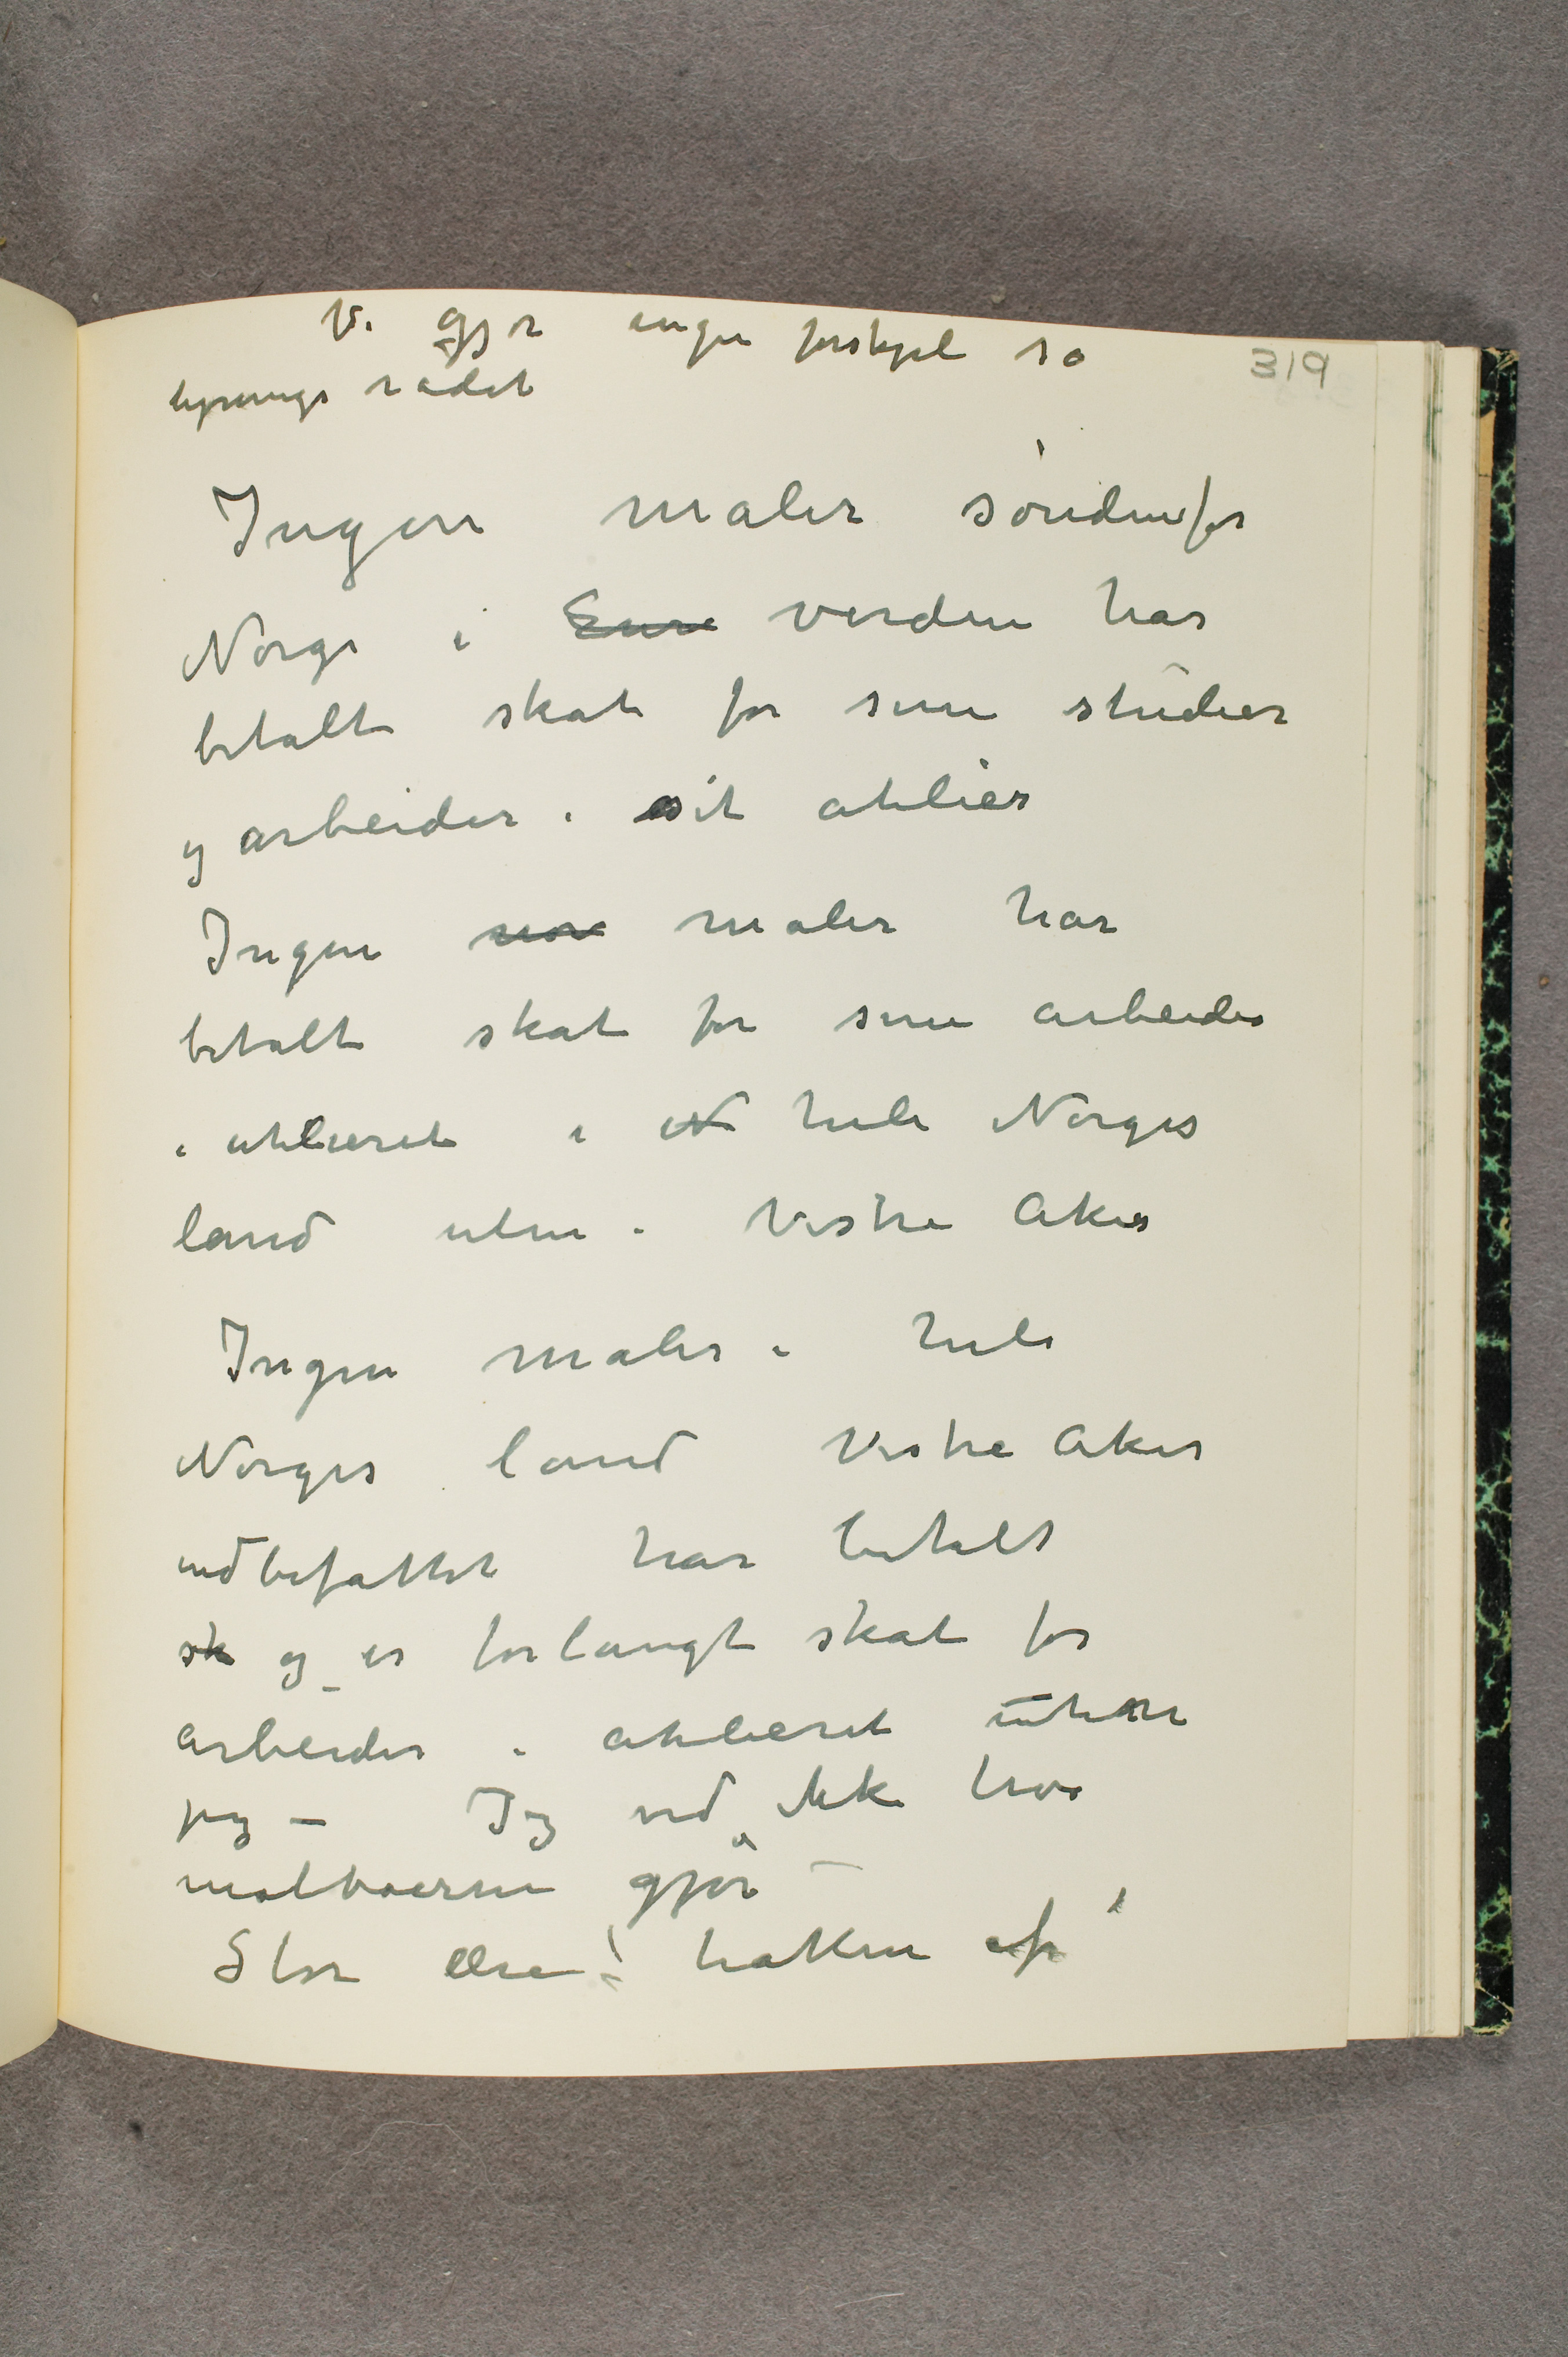 Vi gjør ingen forskjel sa
ligningsrådet
319
Ingen maler søndenfor
Norge i Euro verden har
betalt skat for sine studier
og arbeider i sit atelier
Ingen nor maler har
betalt skat for sine arbeider
i atelieret i hele Norges
land uten i Vestre Aker
Ingen maler i hele
Norges land Vestre Aker
indbefattet har betalt
sk og er forlangt skat for
arbeider i atelieret uten
jeg – Jeg ved ikke hva
malboerne gjør –
Stor ære! hatten af!